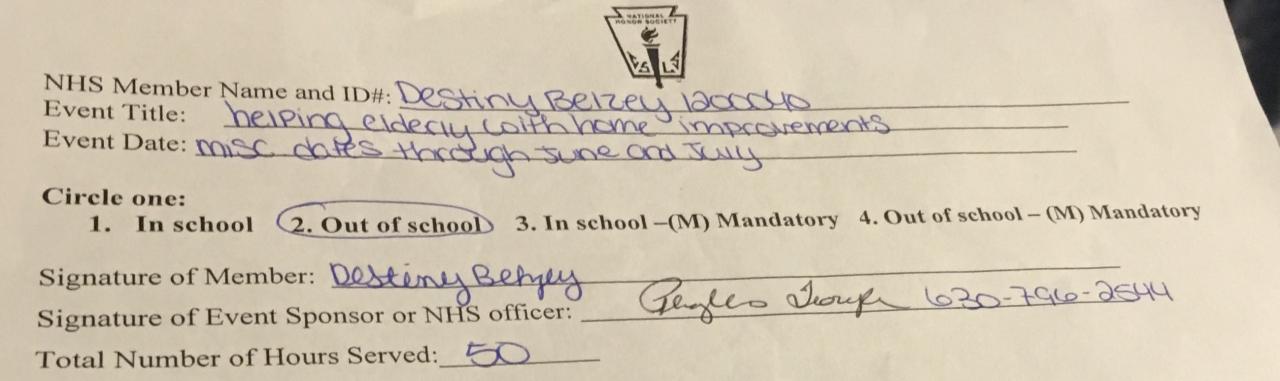 NATIONAL
HONOR SOCIETY
S L
NHS Member Name and ID#: Destiny Belzey 1200040
Event Title: helping elderly with home improvements
Event Date: misc dates through June and July
Circle one:
1. In school 2. Out of school 3. In school –(M) Mandatory 4. Out of school – (M) Mandatory
Signature of Member: Destiny Belzey
Signature of Event Sponsor or NHS officer: 630-796-2544
Total Number of Hours Served: 50